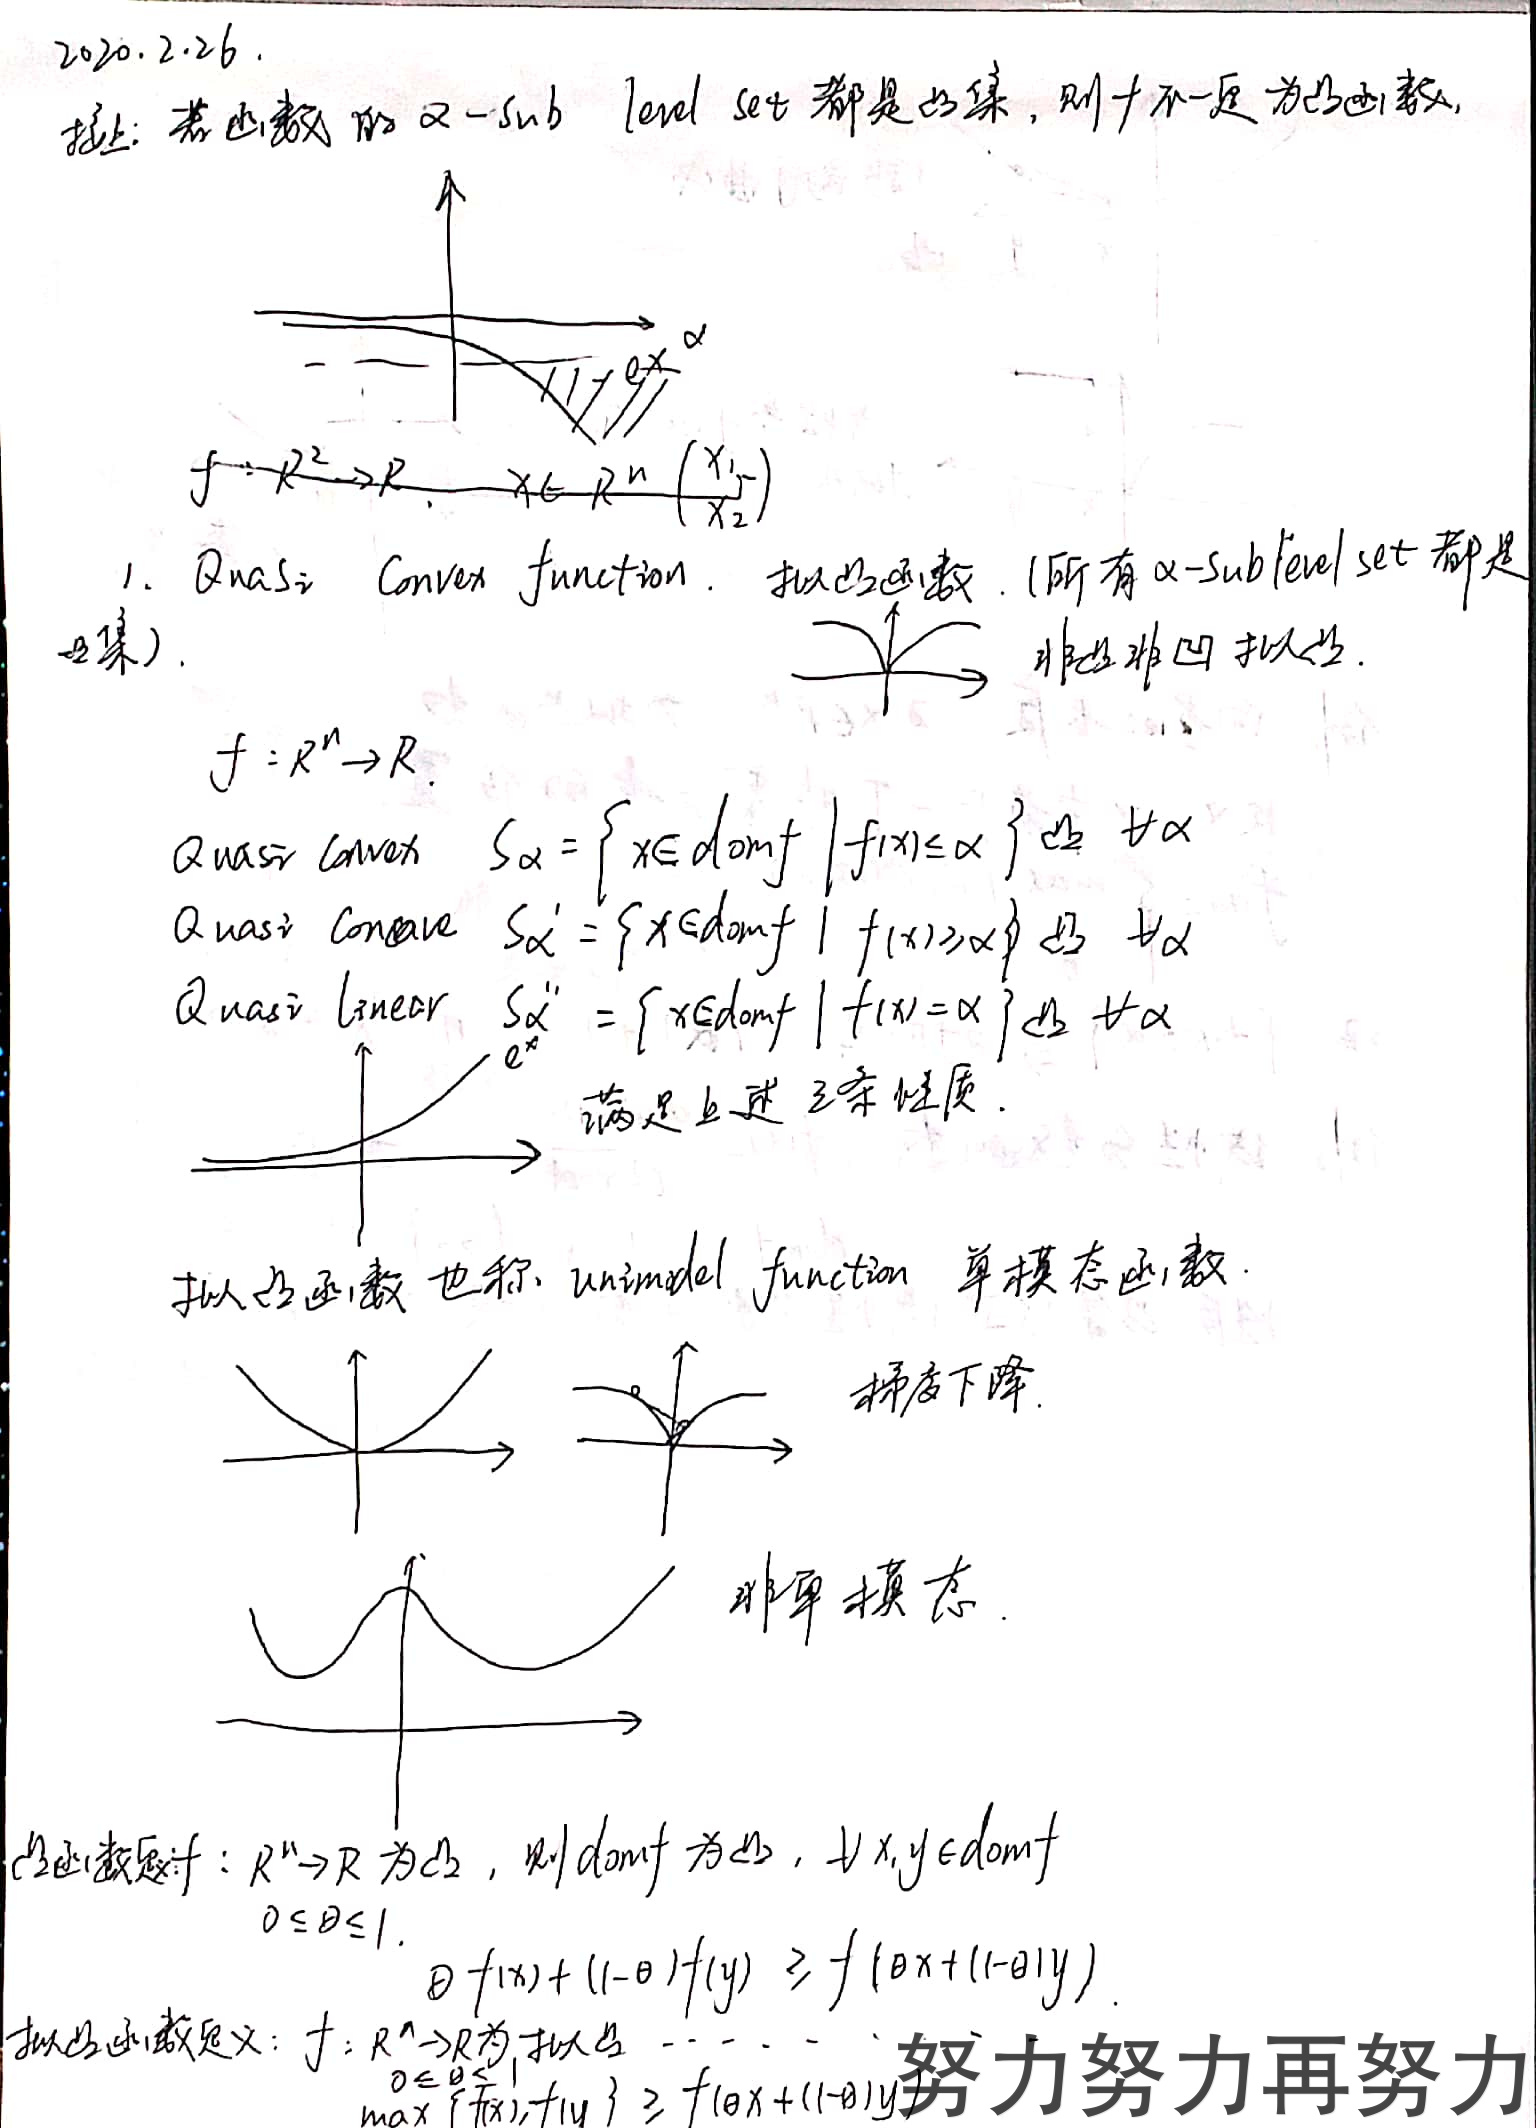 2020.2.26.
接上: 若函数的 α-sub level set 都是凸集, 则 f 不一定为凸函数.
α
-e^x
f: R² → R. x ∈ Rⁿ (x₁ x₂)
1. Quasi Convex function. 拟凸函数. (所有 α-sub level set 都是
凸集).
非凸非凹 拟凸.
f: Rⁿ → R.
Quasi Convex Sα = { x∈domf | f(x) ≤ α } 凸 ∀α
Quasi Concave Sα' = { x∈domf | f(x) ≥ α } 凸 ∀α
Quasi linear Sα'' = { x∈domf | f(x) = α } 凸 ∀α
e^x
满足上述三条性质.
拟凸函数也称 unimodel function 单模态函数.
梯度下降.
非单模态.
凸函数定义: f: Rⁿ → R 为凸, 则 domf 为凸, ∀x,y∈domf
0 ≤ θ ≤ 1.
θf(x)+(1-θ)f(y) ≥ f(θx+(1-θ)y).
拟凸函数定义: f: Rⁿ → R 为拟凸 ------
0 ≤ θ ≤ 1
max {f(x), f(y)} ≥ f(θx+(1-θ)y)
努力努力再努力